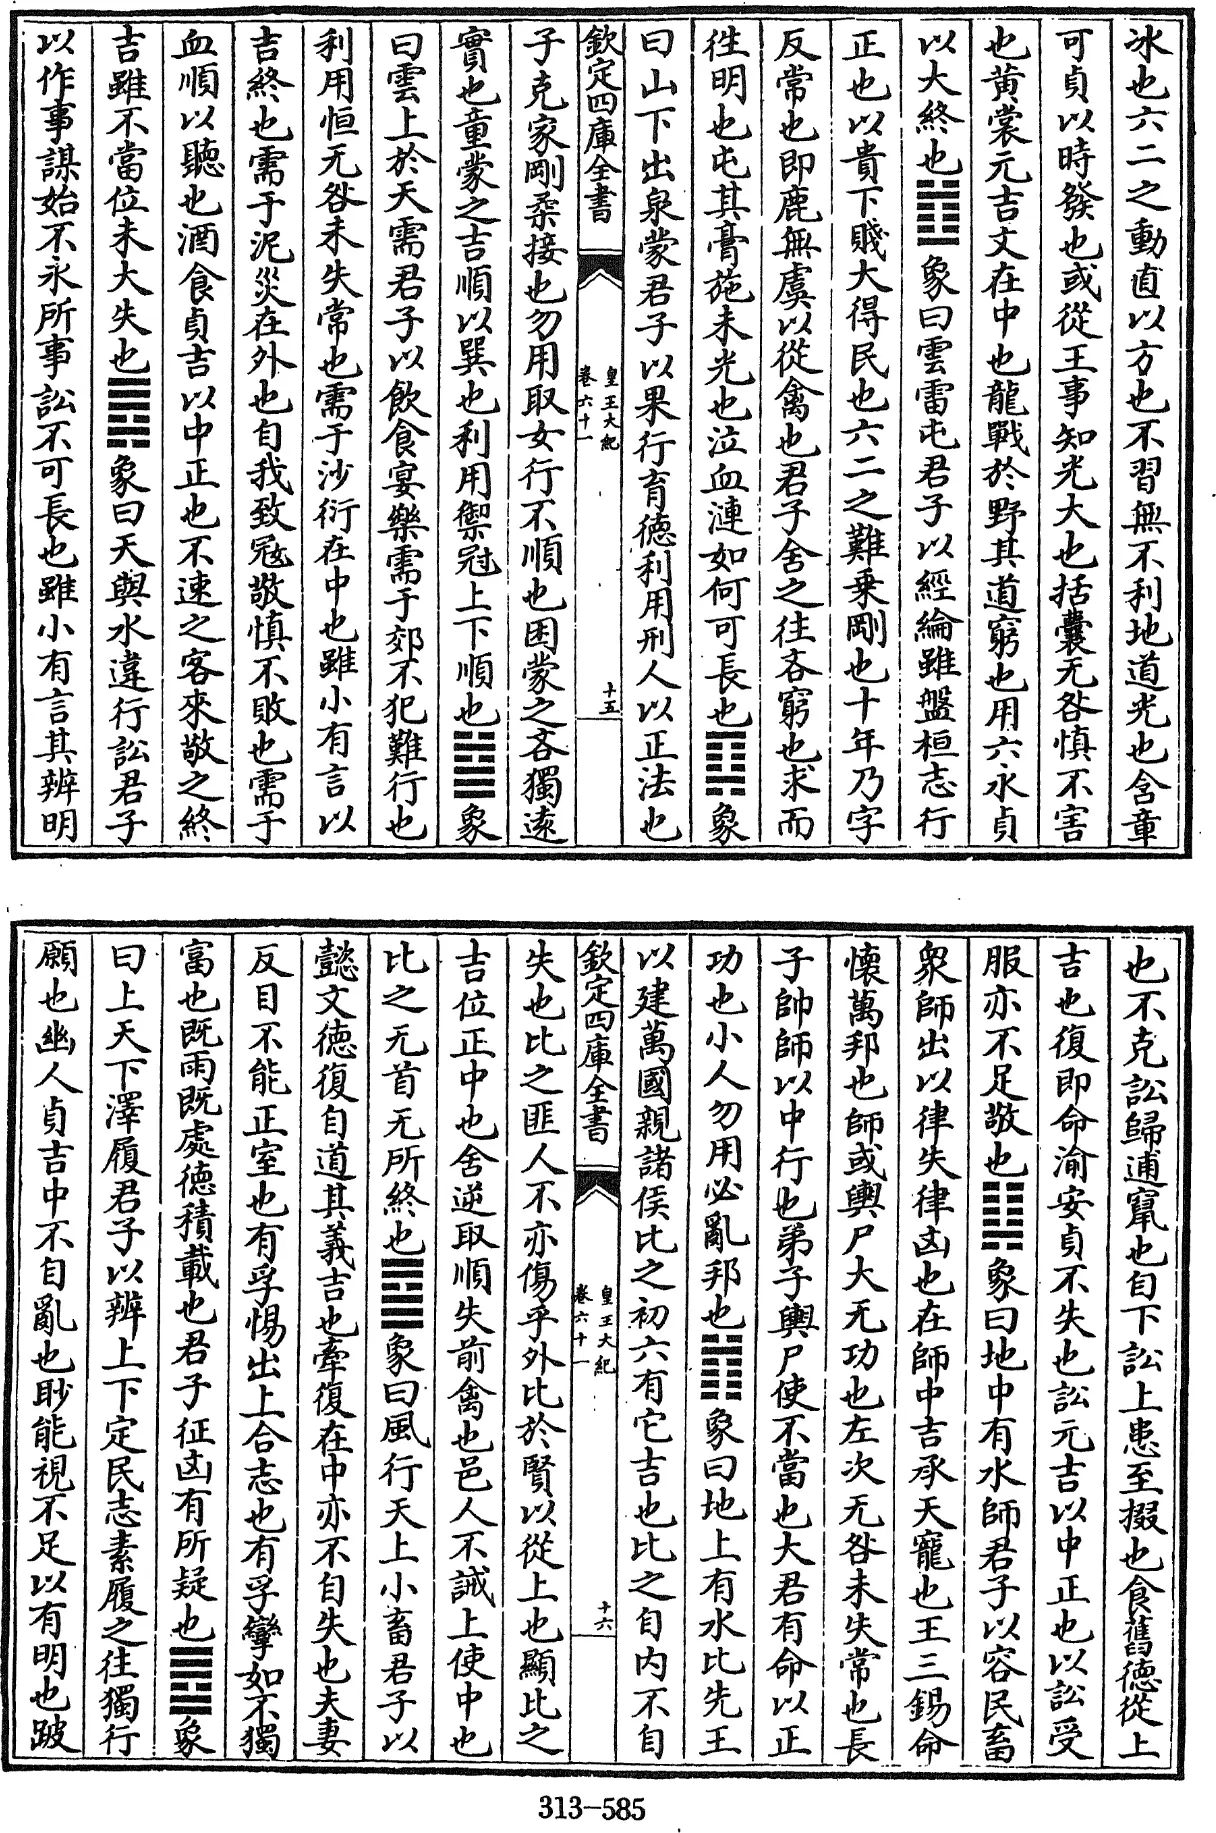 冰也六二之動直以方也不習無不利地道光也含章
可貞以時發也或從王事知光大也括囊无咎慎不害
也黄裳元吉文在中也龍戰於野其道窮也用六永貞
以大終也䷂象曰雲雷屯君子以經綸雖盤桓志行
正也以貴下賤大得民也六二之難乗剛也十年乃字
反常也即鹿無虞以從禽也君子舍之往吝窮也求而
往明也屯其膏施未光也泣血漣如何可長也䷃象
曰山下出泉蒙君子以果行育徳利用刑人以正法也
欽定四庫全書
皇王大紀
卷六十一
十五
子克家剛柔接也勿用取女行不順也困蒙之吝獨逺
實也童蒙之吉順以巽也利用禦冦上下順也䷄象
曰雲上於天需君子以飲食宴樂需于郊不犯難行也
利用恒无咎未失常也需于沙衍在中也雖小有言以
吉終也需于泥災在外也自我致冦敬慎不敗也需于
血順以聽也酒食貞吉以中正也不速之客來敬之終
吉雖不當位未大失也䷅象曰天與水違行訟君子
以作事謀始不永所事訟不可長也雖小有言其辨明
也不克訟歸逋竄也自下訟上患至掇也食舊徳從上
吉也復即命渝安貞不失也訟元吉以中正也以訟受
服亦不足敬也䷆象曰地中有水師君子以容民畜
衆師出以律失律凶也在師中吉承天寵也王三錫命
懷萬邦也師或輿尸大无功也左次无咎未失常也長
子帥師以中行也弟子輿尸使不當也大君有命以正
功也小人勿用必亂邦也䷇象曰地上有水比先王
以建萬國親諸侯比之初六有它吉也比之自内不自
欽定四庫全書
皇王大紀
卷六十一
十六
失也比之匪人不亦傷乎外比於賢以從上也顯比之
吉位正中也舍逆取順失前禽也邑人不誡上使中也
比之无首无所終也䷈象曰風行天上小畜君子以
懿文徳復自道其義吉也牽復在中亦不自失也夫妻
反目不能正室也有孚惕出上合志也有孚攣如不獨
富也既雨既處徳積載也君子征凶有所疑也䷉象
曰上天下澤履君子以辨上下定民志素履之往獨行
願也幽人貞吉中不自亂也眇能視不足以有明也跛
313-585